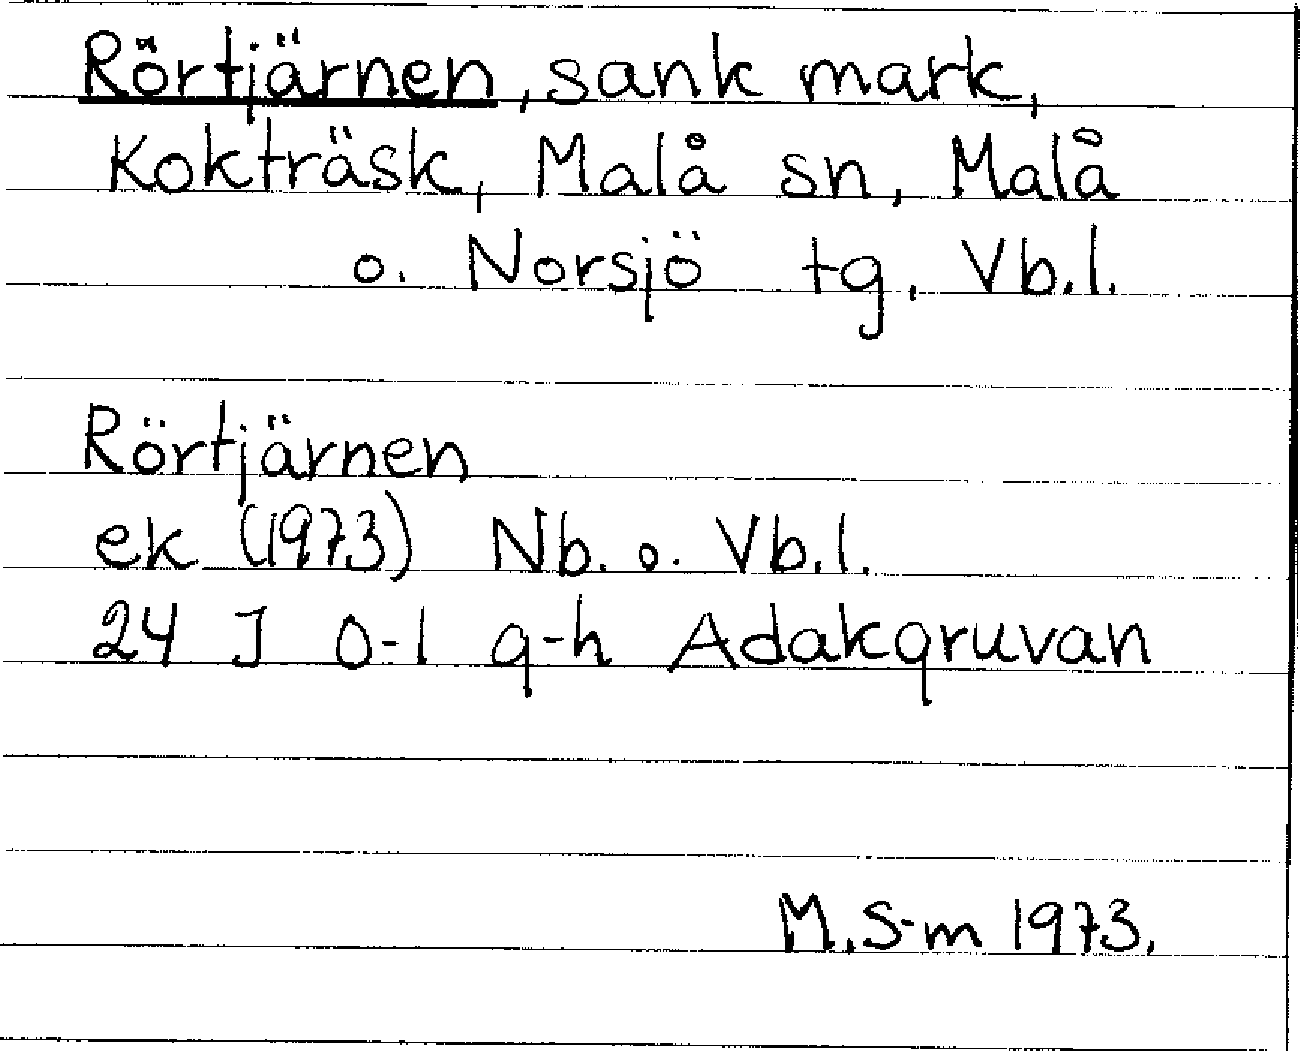 Rörtjärnen, sank mark,
Kokträsk, Malå sn, Malå
o. Norsjö tg, Vb.l.
Rörtjärnen
ek (1973) Nb. o. Vb.l.
24 J 0-1 g-h Adakgruvan
M.S-m 1973.